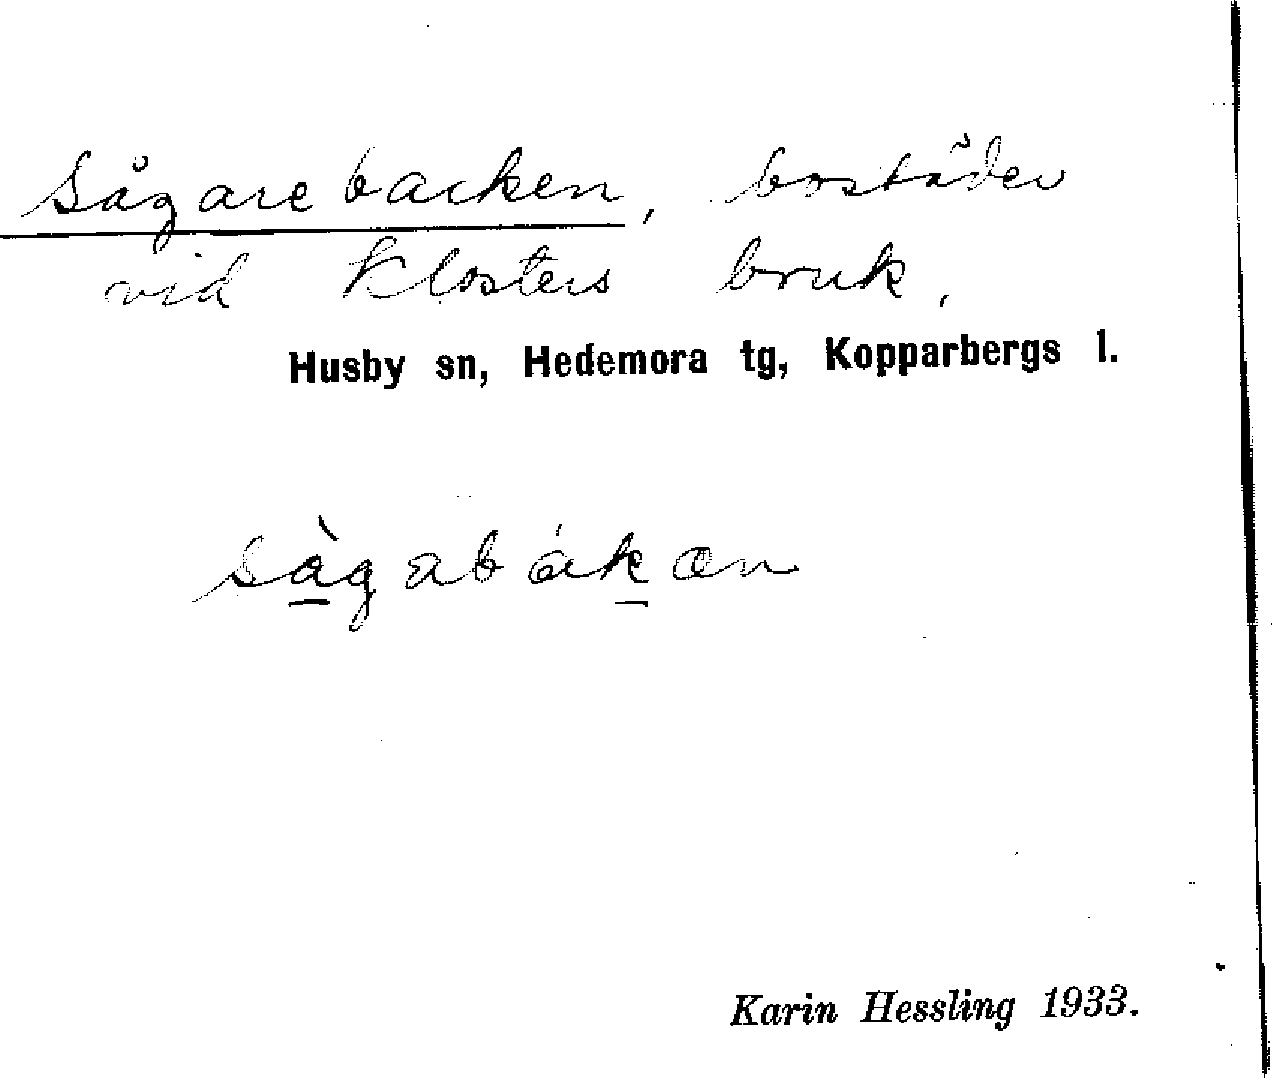 Sågarebacken, bostäder
vid Klosters bruk.
Husby sn, Hedemora tg, Kopparbergs l.
sàgabákæn
Karin Hessling 1933.